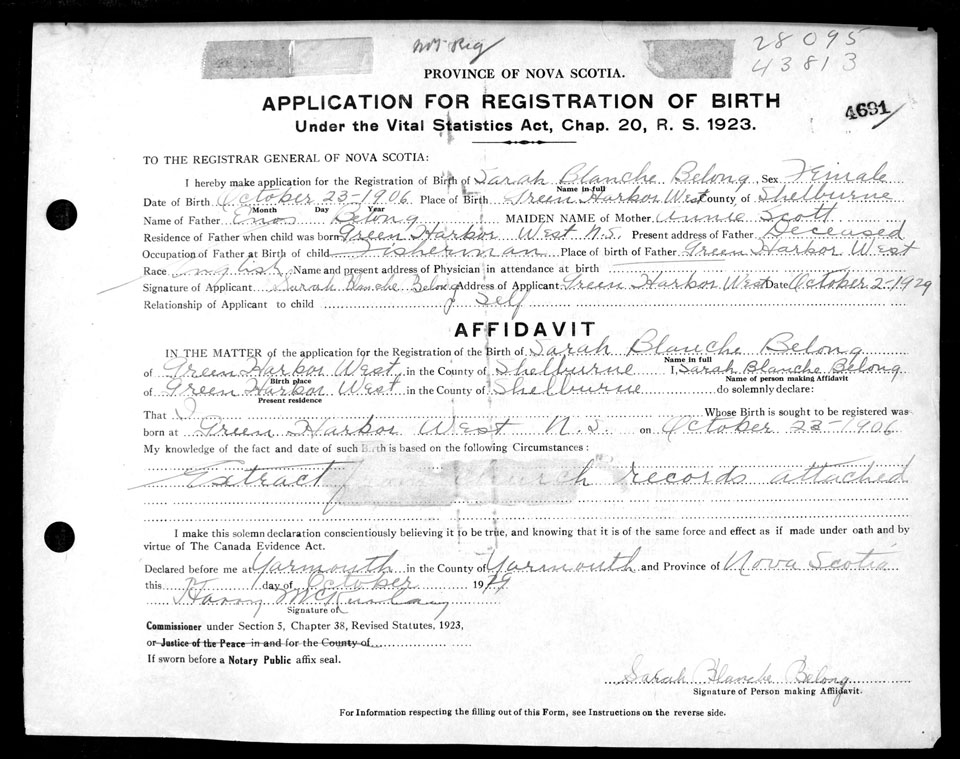 Not Reg
28095
43813
PROVINCE OF NOVA SCOTIA.
APPLICATION FOR REGISTRATION OF BIRTH
4691
Under the Vital Statistics Act, Chap. 20, R. S. 1923.
TO THE REGISTRAR GENERAL OF NOVA SCOTIA:
I hereby make application for the Registration of Birth of Sarah Blanche Belong, Sex Female
Name in full
Date of Birth October 23-1906 Place of Birth Green Harbor West County of Shelburne
Month Day Year
Name of Father Enos Belong MAIDEN NAME of Mother Annie Scott
Residence of Father when child was born Green Harbor West N.S. Present address of Father Deceased
Occupation of Father at Birth of child Fisherman Place of birth of Father Green Harbor West
Race English Name and present address of Physician in attendance at birth
Signature of Applicant Sarah Blanche Belong Address of Applicant Green Harbor West Date October 2-1929
Relationship of Applicant to child Self
AFFIDAVIT
IN THE MATTER of the application for the Registration of the Birth of Sarah Blanche Belong
Name in full
of Green Harbor West, in the County of Shelburne I, Sarah Blanche Belong
Birth place Name of person making Affidavit
of Green Harbor West in the County of Shelburne do solemnly declare:
Present residence
That I Whose Birth is sought to be registered was
born at Green Harbor West N.S. on October 23-1906
My knowledge of the fact and date of such Birth is based on the following Circumstances:
Extract from church records attached
I make this solemn declaration conscientiously believing it to be true, and knowing that it is of the same force and effect as if made under oath and by
virtue of The Canada Evidence Act.
Declared before me at Yarmouth in the County of Yarmouth and Province of Nova Scotia
this day of October 1929
Harry
Signature of
Commissioner under Section 5, Chapter 38, Revised Statutes, 1923,
or Justice of the Peace in and for the County of
If sworn before a Notary Public affix seal.
Sarah Blanche Belong
Signature of Person making Affidavit.
For Information respecting the filling out of this Form, see Instructions on the reverse side.